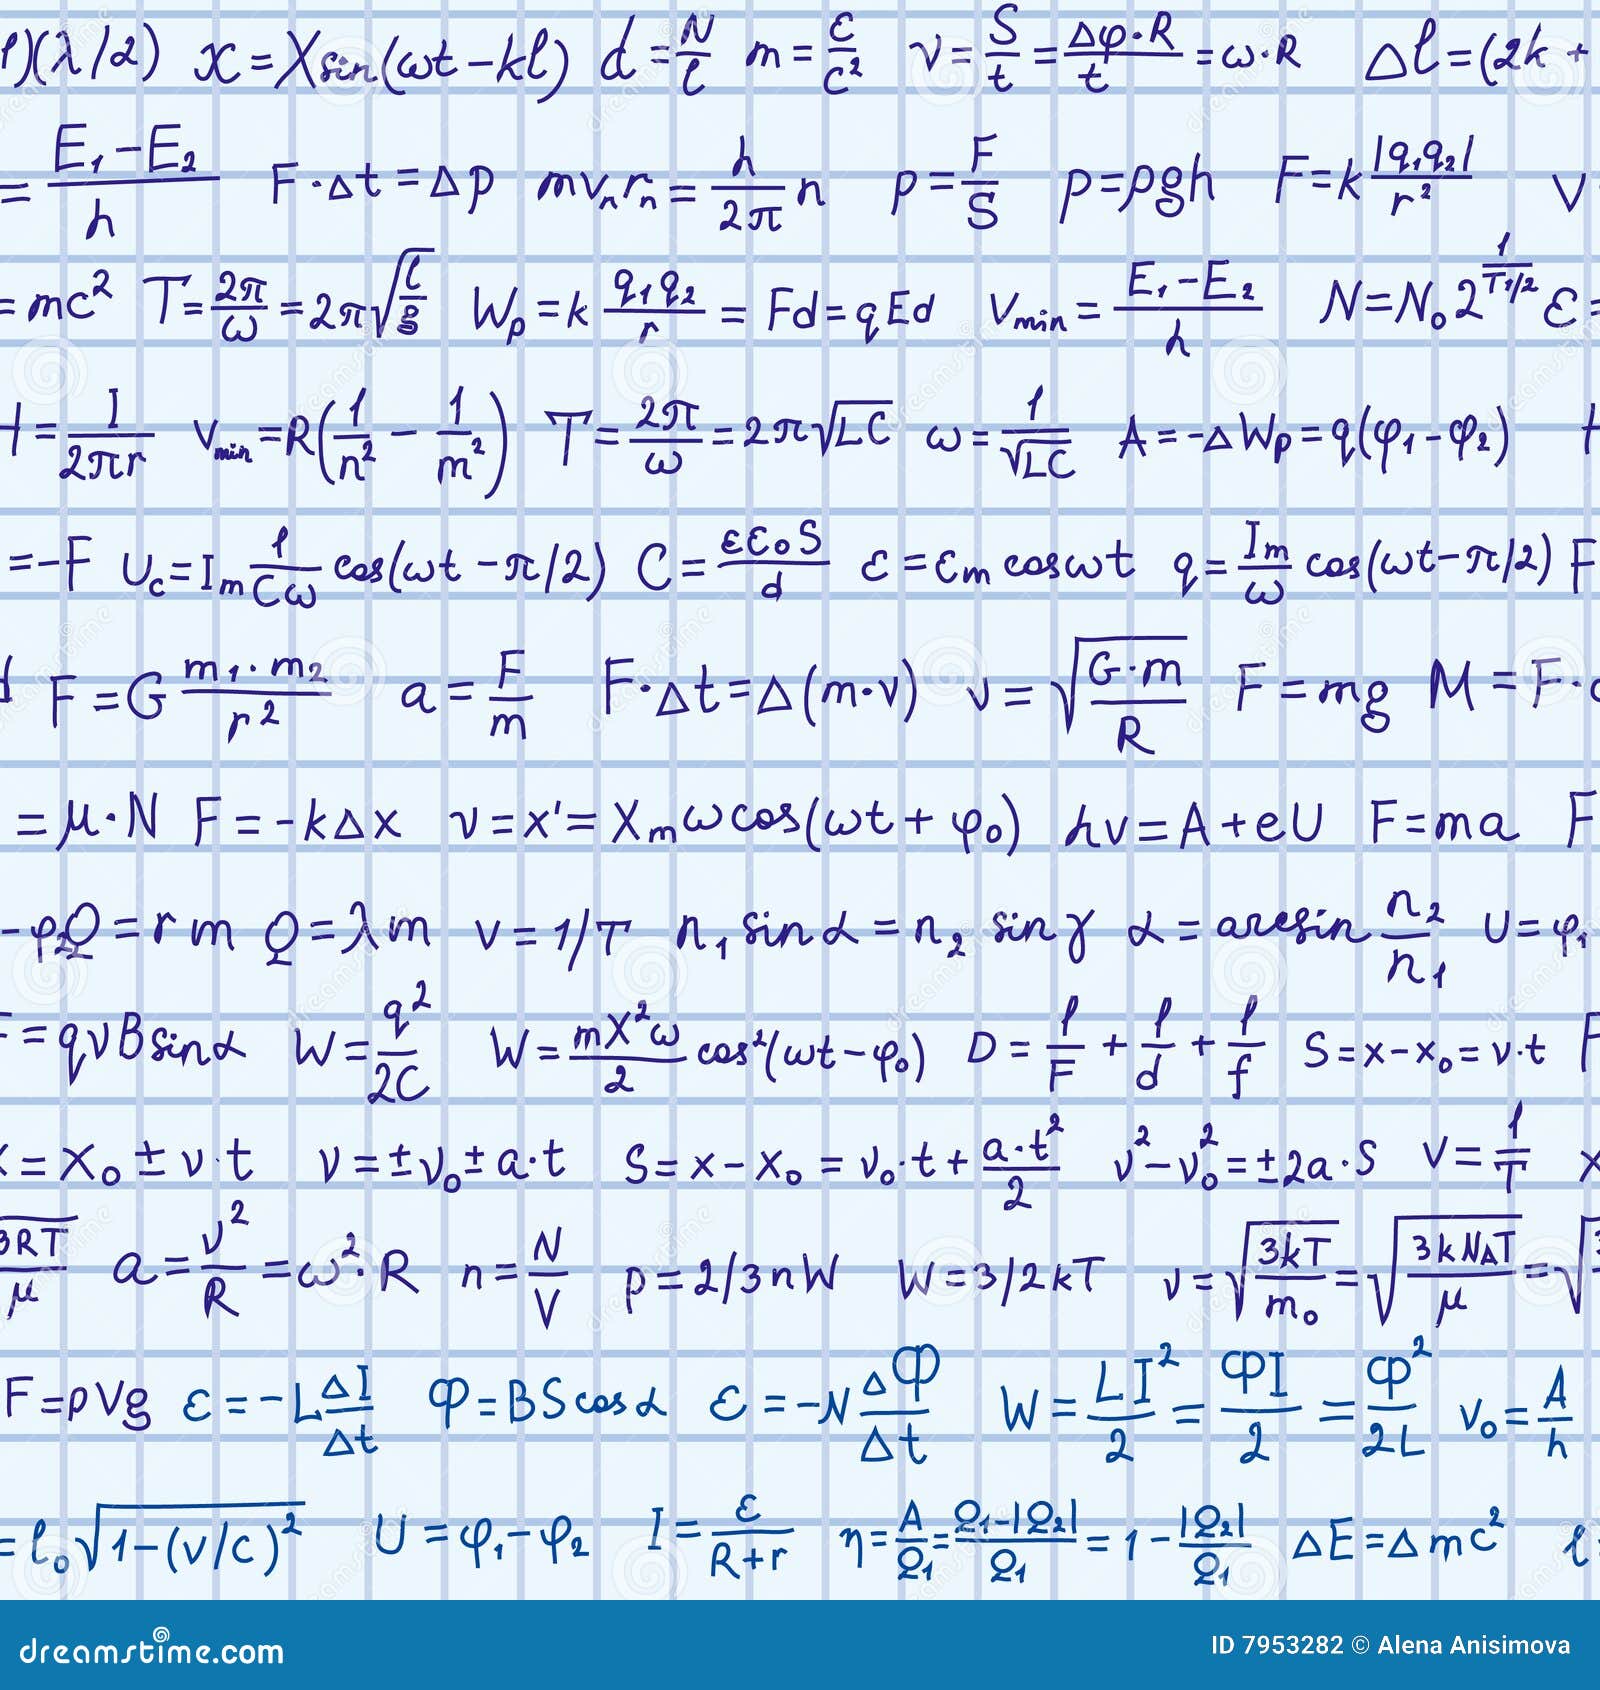 1)(λ/2) x=Xsin(ωt-kl) d=N/l m=ε/c² v=S/t=Δφ·R/t=ω·R Δl=(2k+
=E₁-E₂/h F·Δt=Δp mvₙrₙ=h/2π n p=F/S p=ρgh F=k|q₁q₂|/r² V
=mc² T=2π/ω=2π√(l/g) Wp=k q₁q₂/r=Fd=qEd Vmin=E₁-E₂/h N=N₀2^(1/T1/2) ε=
H=I/2πr Vmin=R(1/n²-1/m²) T=2π/ω=2π√LC ω=1/√LC A=-ΔWp=q(φ₁-φ₂)
=-F Uc=Im 1/Cω cos(ωt-π/2) C=εε₀S/d ε=εm cosωt q=Im/ω cos(ωt-π/2) F
F=G m₁·m₂/r² a=F/m F·Δt=Δ(m·v) v=√(G·m/R) F=mg M=F·
=μ·N F=-kΔx v=x'=Xmωcos(ωt+φ₀) hv=A+eU F=ma F
-φ₂ Q=rm Q=λm v=1/T n₁sinα=n₂sinγ α=arcsin n₂/n₁ U=φ₁
F=qvBsinα W=q²/2C W=mX²ω/2 cos²(ωt-φ₀) D=1/F+1/d+1/f S=x-x₀=v·t F
x=x₀±v·t v=±v₀±a·t S=x-x₀=v₀·t+a·t²/2 v²-v₀²=±2a·S V=1/T x
3RT/μ a=v²/R=ω²·R n=N/V p=2/3nW W=3/2kT v=√(3kT/m₀)=√(3kNAT/μ)=√3
F=ρVg ε=-LΔI/Δt Φ=BScosα ε=-NΔΦ/Δt W=LI²/2=ΦI/2=Φ²/2L v₀=A/h
=l₀√1-(v/c)² U=φ₁-φ₂ I=ε/R+r η=A/Q₁=Q₁-|Q₂|/Q₁=1-|Q₂|/Q₁ ΔE=Δmc² l=
dreamstime.com ID 7953282 © Alena Anisimova